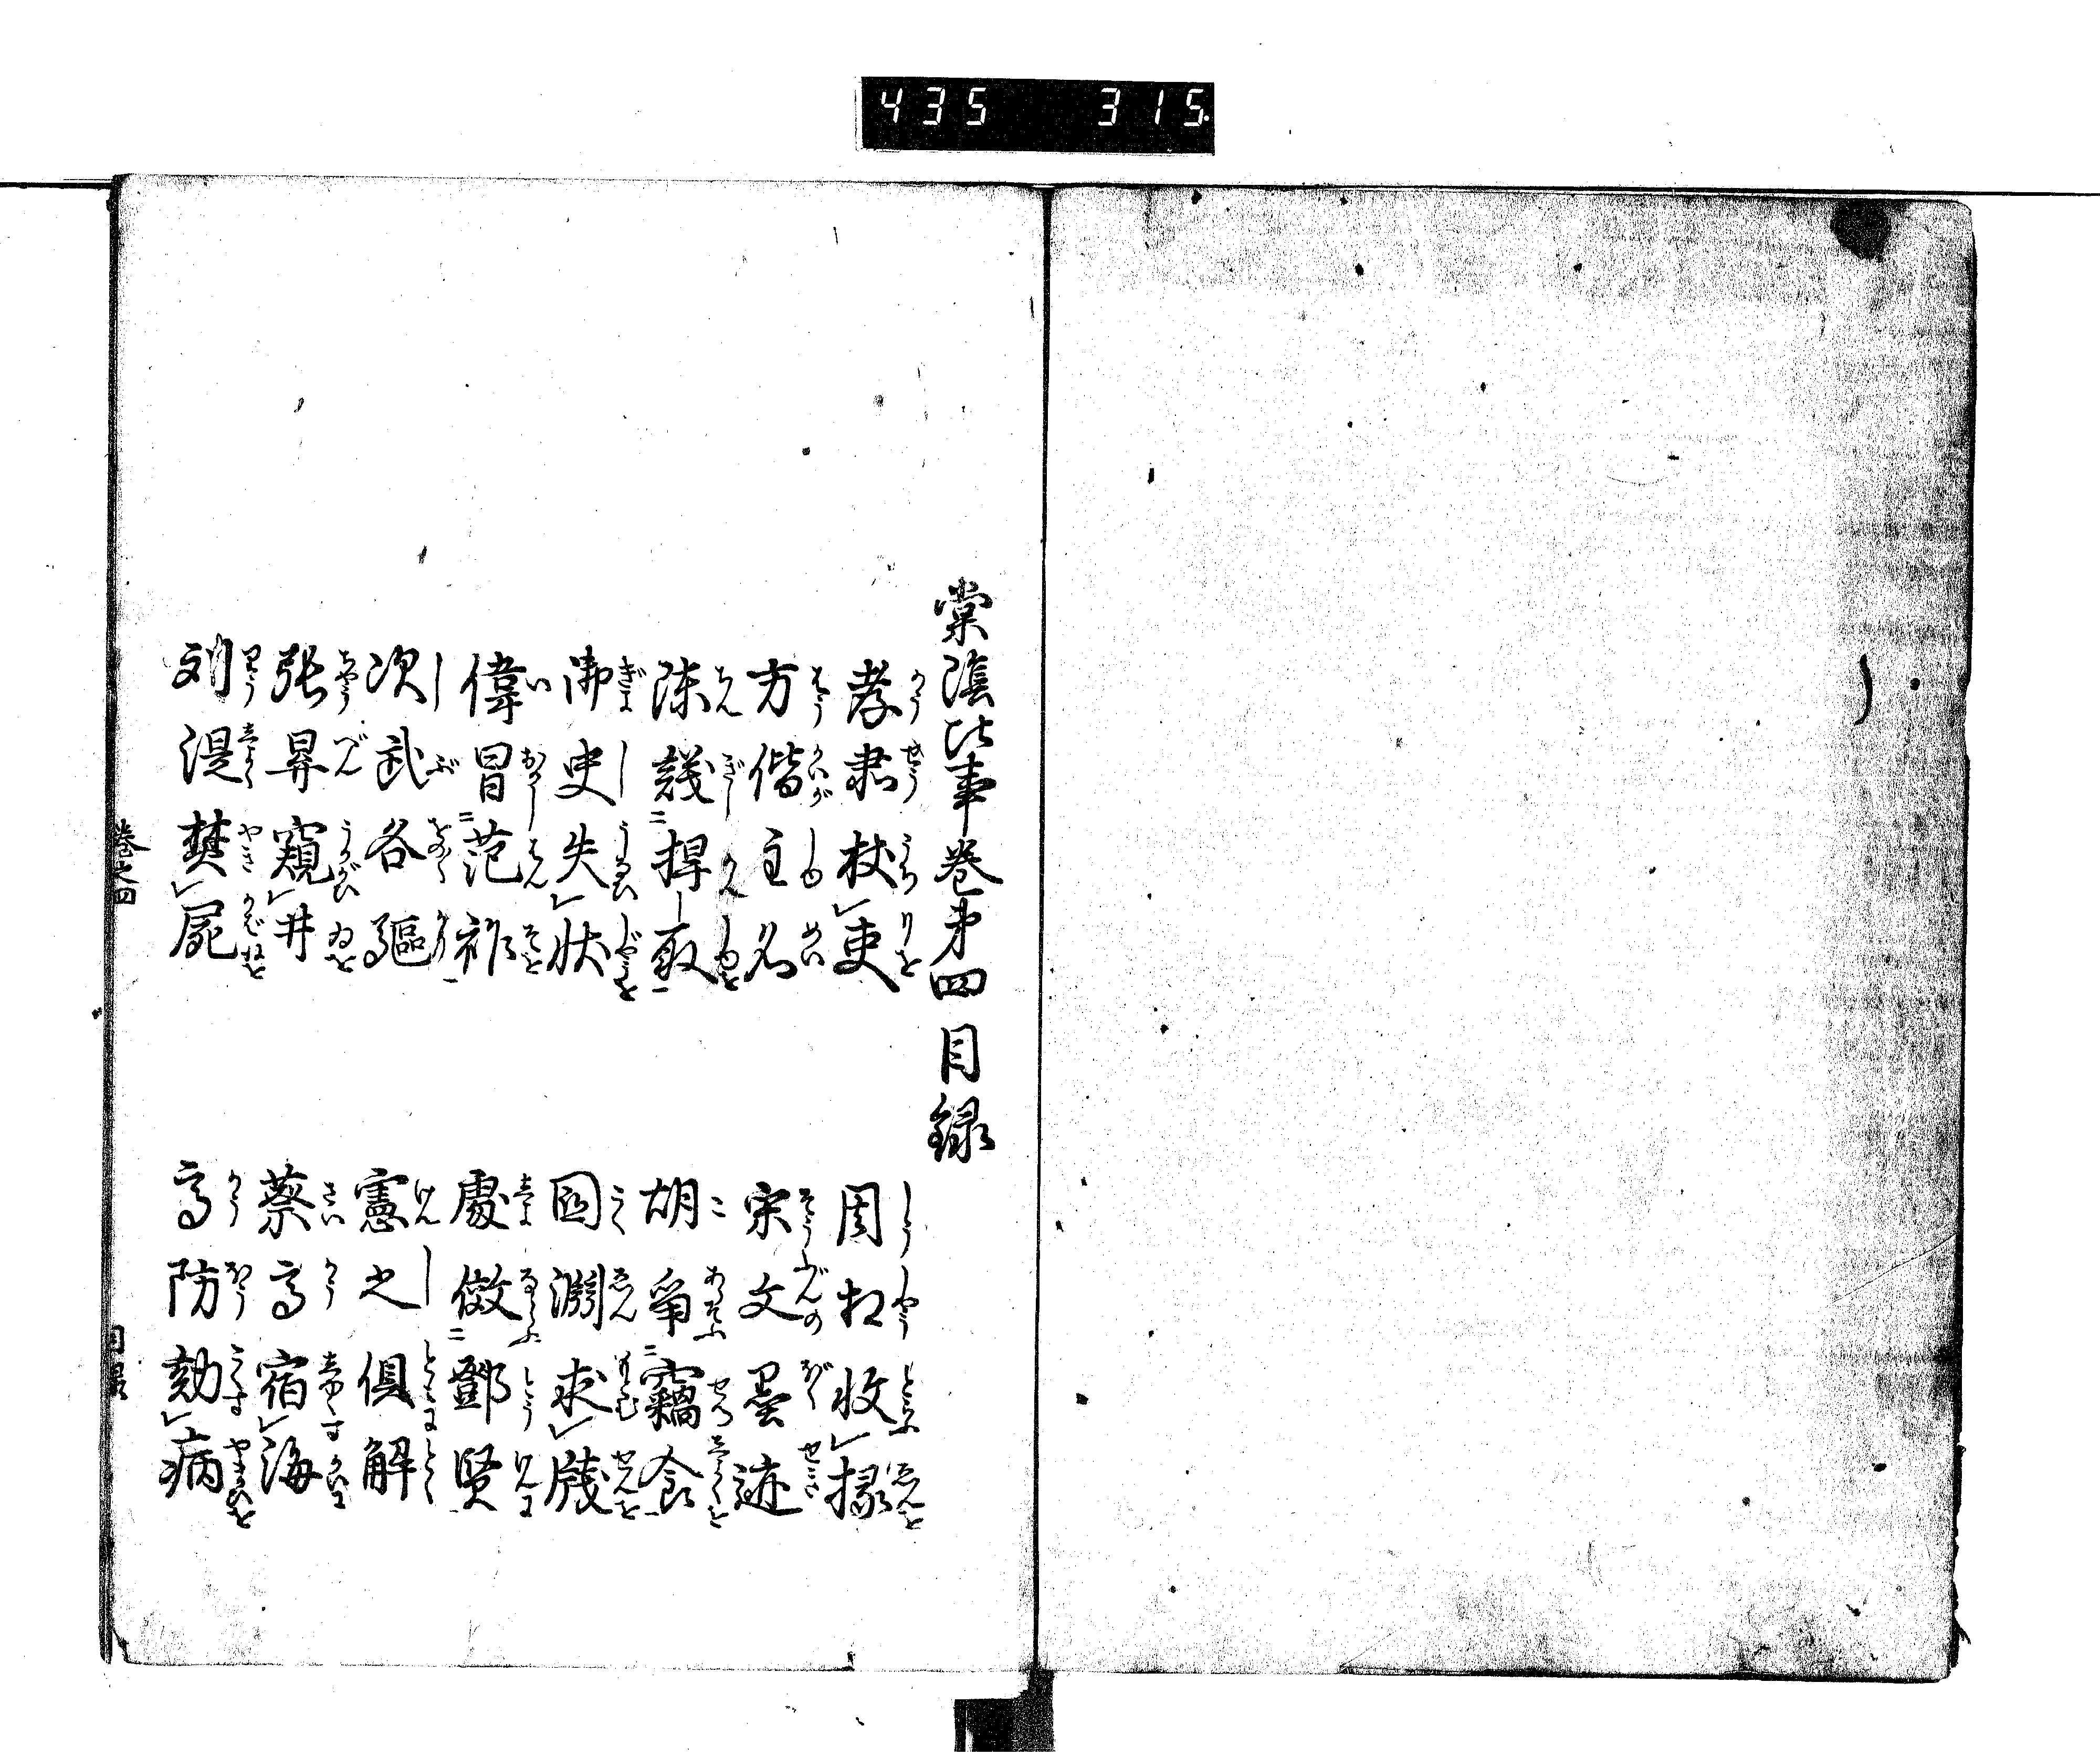 435 315
棠陰比事巻第四目録
孝肅杖吏 周相收掾
方偕主名 宋文墨迹
陳議捍取 胡爭竊食
御史失状 國淵求牋
偉冒范祚 處倣鄧賢
次武各驅 憲之俱解
張昇窺井 蔡高宿海
刘湜焚屍 高防劾病
巻之四 目录